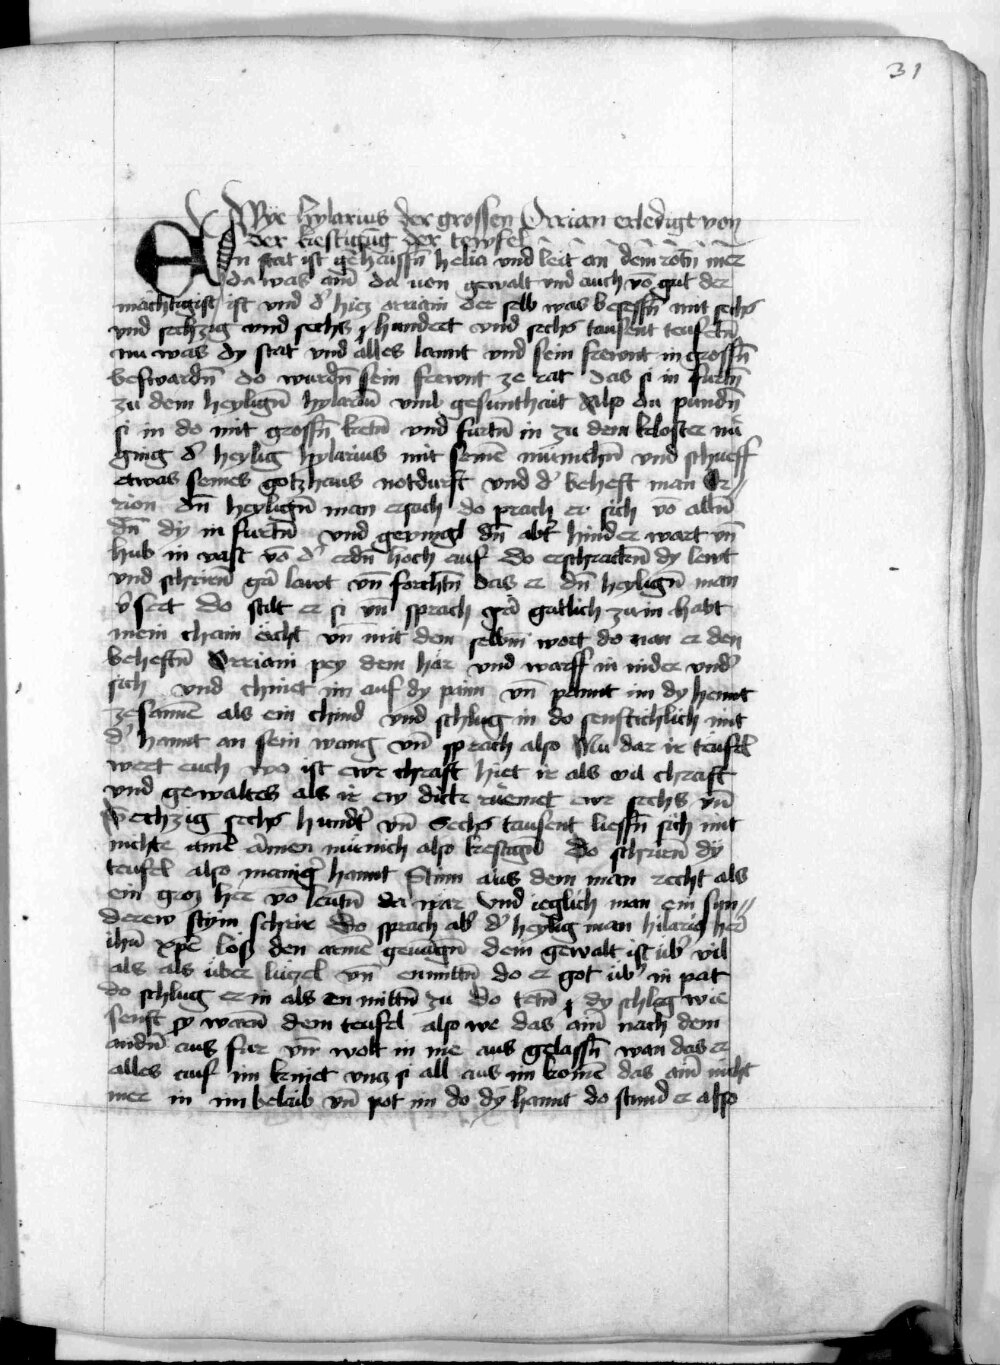 31
Wye hylarius der grossen Orrian erledigt von
der bestigūg der tewfel
Ein stat ist gehaissn̄ helia vnd leit an dem rotn̄ mer
da was ainē da uon gewalt vnd auch vō gut der
mächtigist ist vnd d' hiez orriain der selb was besessn̄ mit sechs
vnd sechzig vnd sechs hundert vnd sechs tausent teufeln̄
nu was dy stat vnd alles lannt vnd sein frewnt in grossn̄
beswardn̄ do wurdn̄ sein frewnt ze rat das si in furtn̄
zu dem heylign̄ hylariū vmb gesunthait Also da pundn̄
si in do mit grossn̄ ketn̄ vnd furtn̄ in zu dem kloster nu
ging d' heylig hylarius mit seinē münichn̄ vnd schueff
etwas seines gotzhaus notdurft vnd d' beheft man Or
rion dn̄ heylign̄ man ersach do prach er sich vō alln̄
dn̄ dy in furtn̄ vnd geringl dn̄ abt hinder wart vn̄
hub in vast vō d' erdn̄ hoch auf do erschrackn̄ dy lewt
vnd schrienn̄ gar lawt vn̄ forchtn̄ das er dn̄ heylign̄ man
v'sert do stilt er si vn̄ sprach gar gutlich zu in habt
mein chain ächt vn̄ mit dem selbm wort do nam er den
beheftn̄ Orriain pey dem har vnd warff in nider vnd'
sich vnd chniet im auf dy pain vn̄ pannt im dy hennt
zesamē als ein chind vnd schlug in do senftichlich mit
d' hannt an sein wang vn̄ sprach also Nu dar ir teufel
wert euch wo ist ewr chraft hiet ir als vil chraft
vnd gewaltes als ir ew dickr rüemet ewr sechs vn̄
Sechzig sechs hund't vn̄ Sechs tausent liessn̄ sich mit
nichte ainē armen münich also bestagn̄ Do schrienn̄ dy
teufel also manig' hannt Stim aus dem man recht als
ein groz her vō leutn̄ da war Vnd ieglich man ein sun
derew stym schrie Do sprach ab' d' heylig man hilariꝯ her
ihū xp̄e lös den armē geuāgn̄ dem gewalt ist üb' vil
als als über lüczel vn̄ enmittn̄ do er got üb' in pat
do schlug er in als en mittn̄ zu do tetn̄ dy schleg wie
senft sy warn̄ dem teufel also we das ainē nach dem
andn̄ aus fur vn̄ wolt in nie aus gelassn̄ wan das er
alles auf im kniet vnz si all aus im komē das ainē nicht
mer in im belaib vn̄ pot im do dy hannt do stund er also